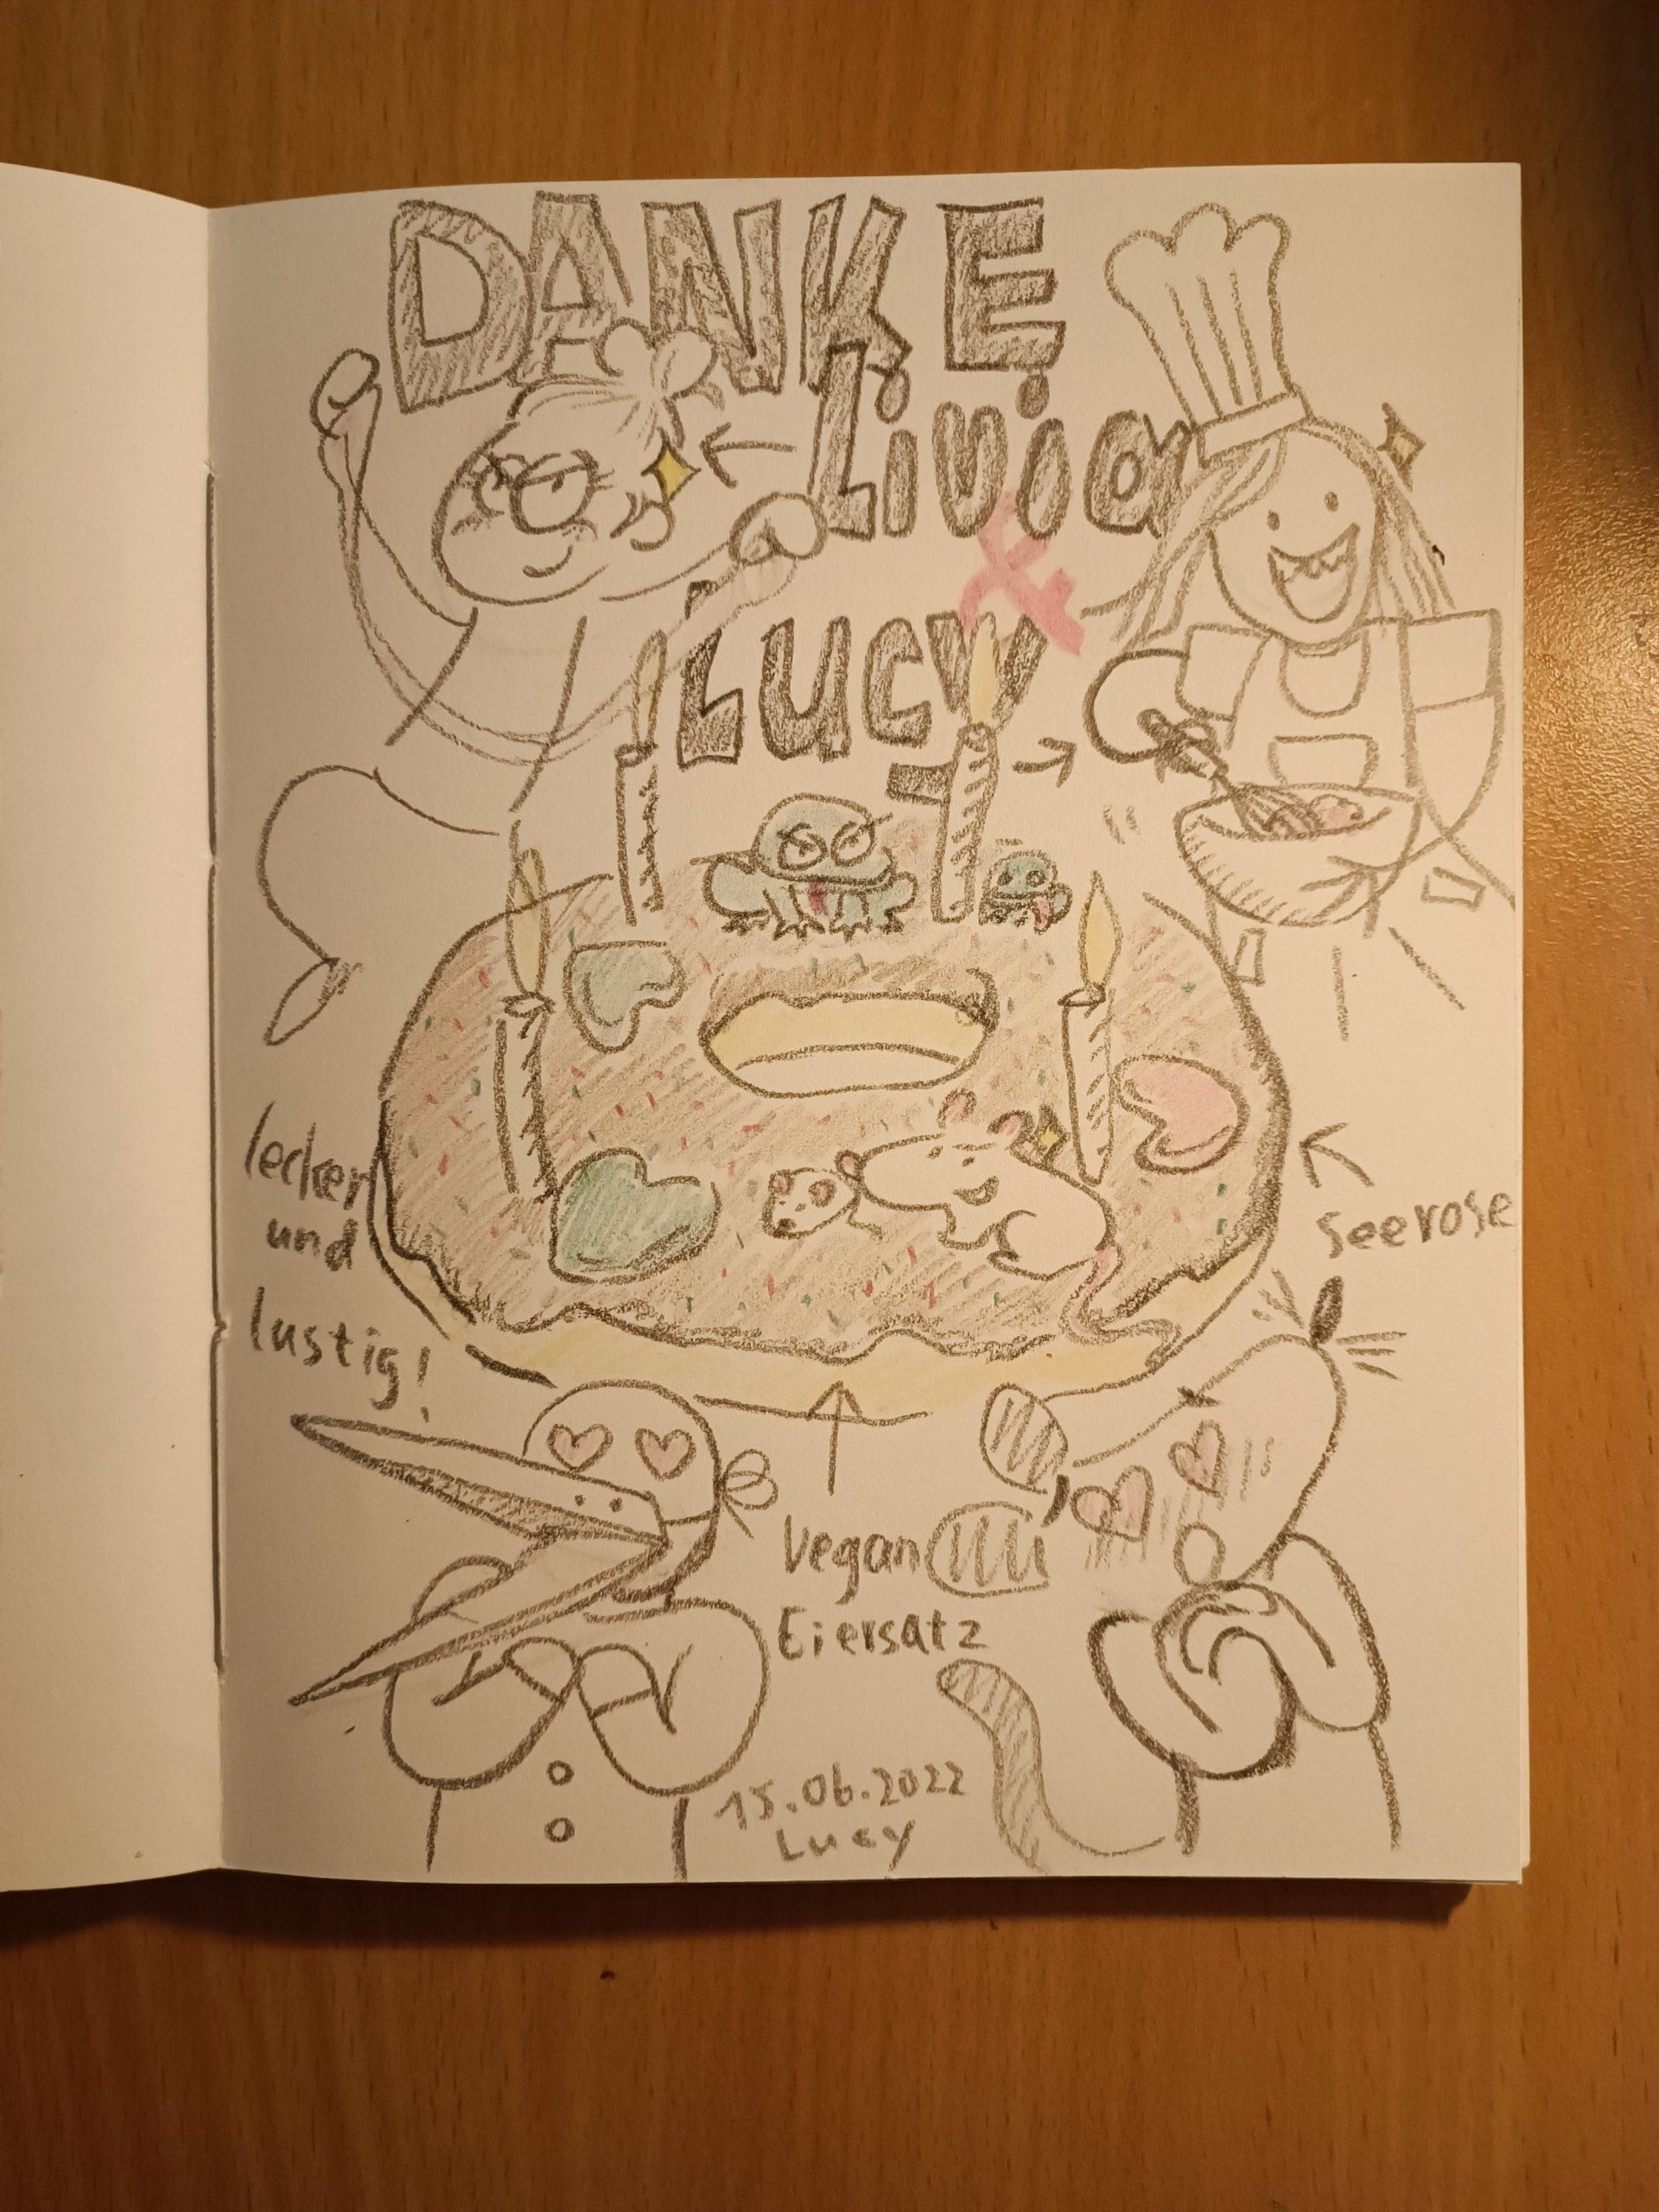 DANKE
Livia
&
Lucy
lecker
und
lustig!
seerose
Vegan
Eiersatz
15.06.2022
Lucy